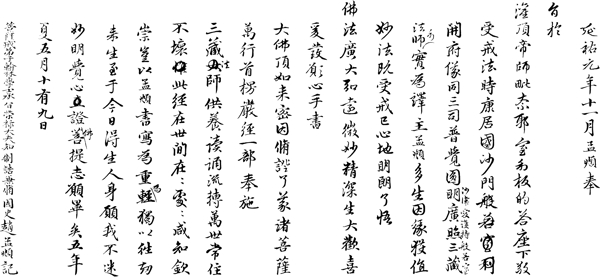 延祐元年十一月孟頫奉
旨於
灌頂帝師毗奈耶室利板的荅座下敬
受戒法時康居國沙門般若室利
開府儀同三司普覺圓明廣照三藏
法師實為譯主孟頫多生因緣獲值
妙法既受戒已心地明朗了悟
佛法廣大弘遠微妙精深生大歡喜
爰發願心手書
大佛頂如來密因脩證了義諸菩薩
萬行首楞嚴經一部奉施
三藏法師供養讀誦流摶萬世常住
不壞此經在世間在〻處〻咸知欽
崇豈以孟頫書寫為重輕獨以往劫
來生至于今日得生人身願我不迷
妙明覺心立證菩提志願畢矣五年
夏五月十有九日
菩薩戒弟子翰林學士承旨榮祿大夫知制誥兼脩國史趙孟頫記